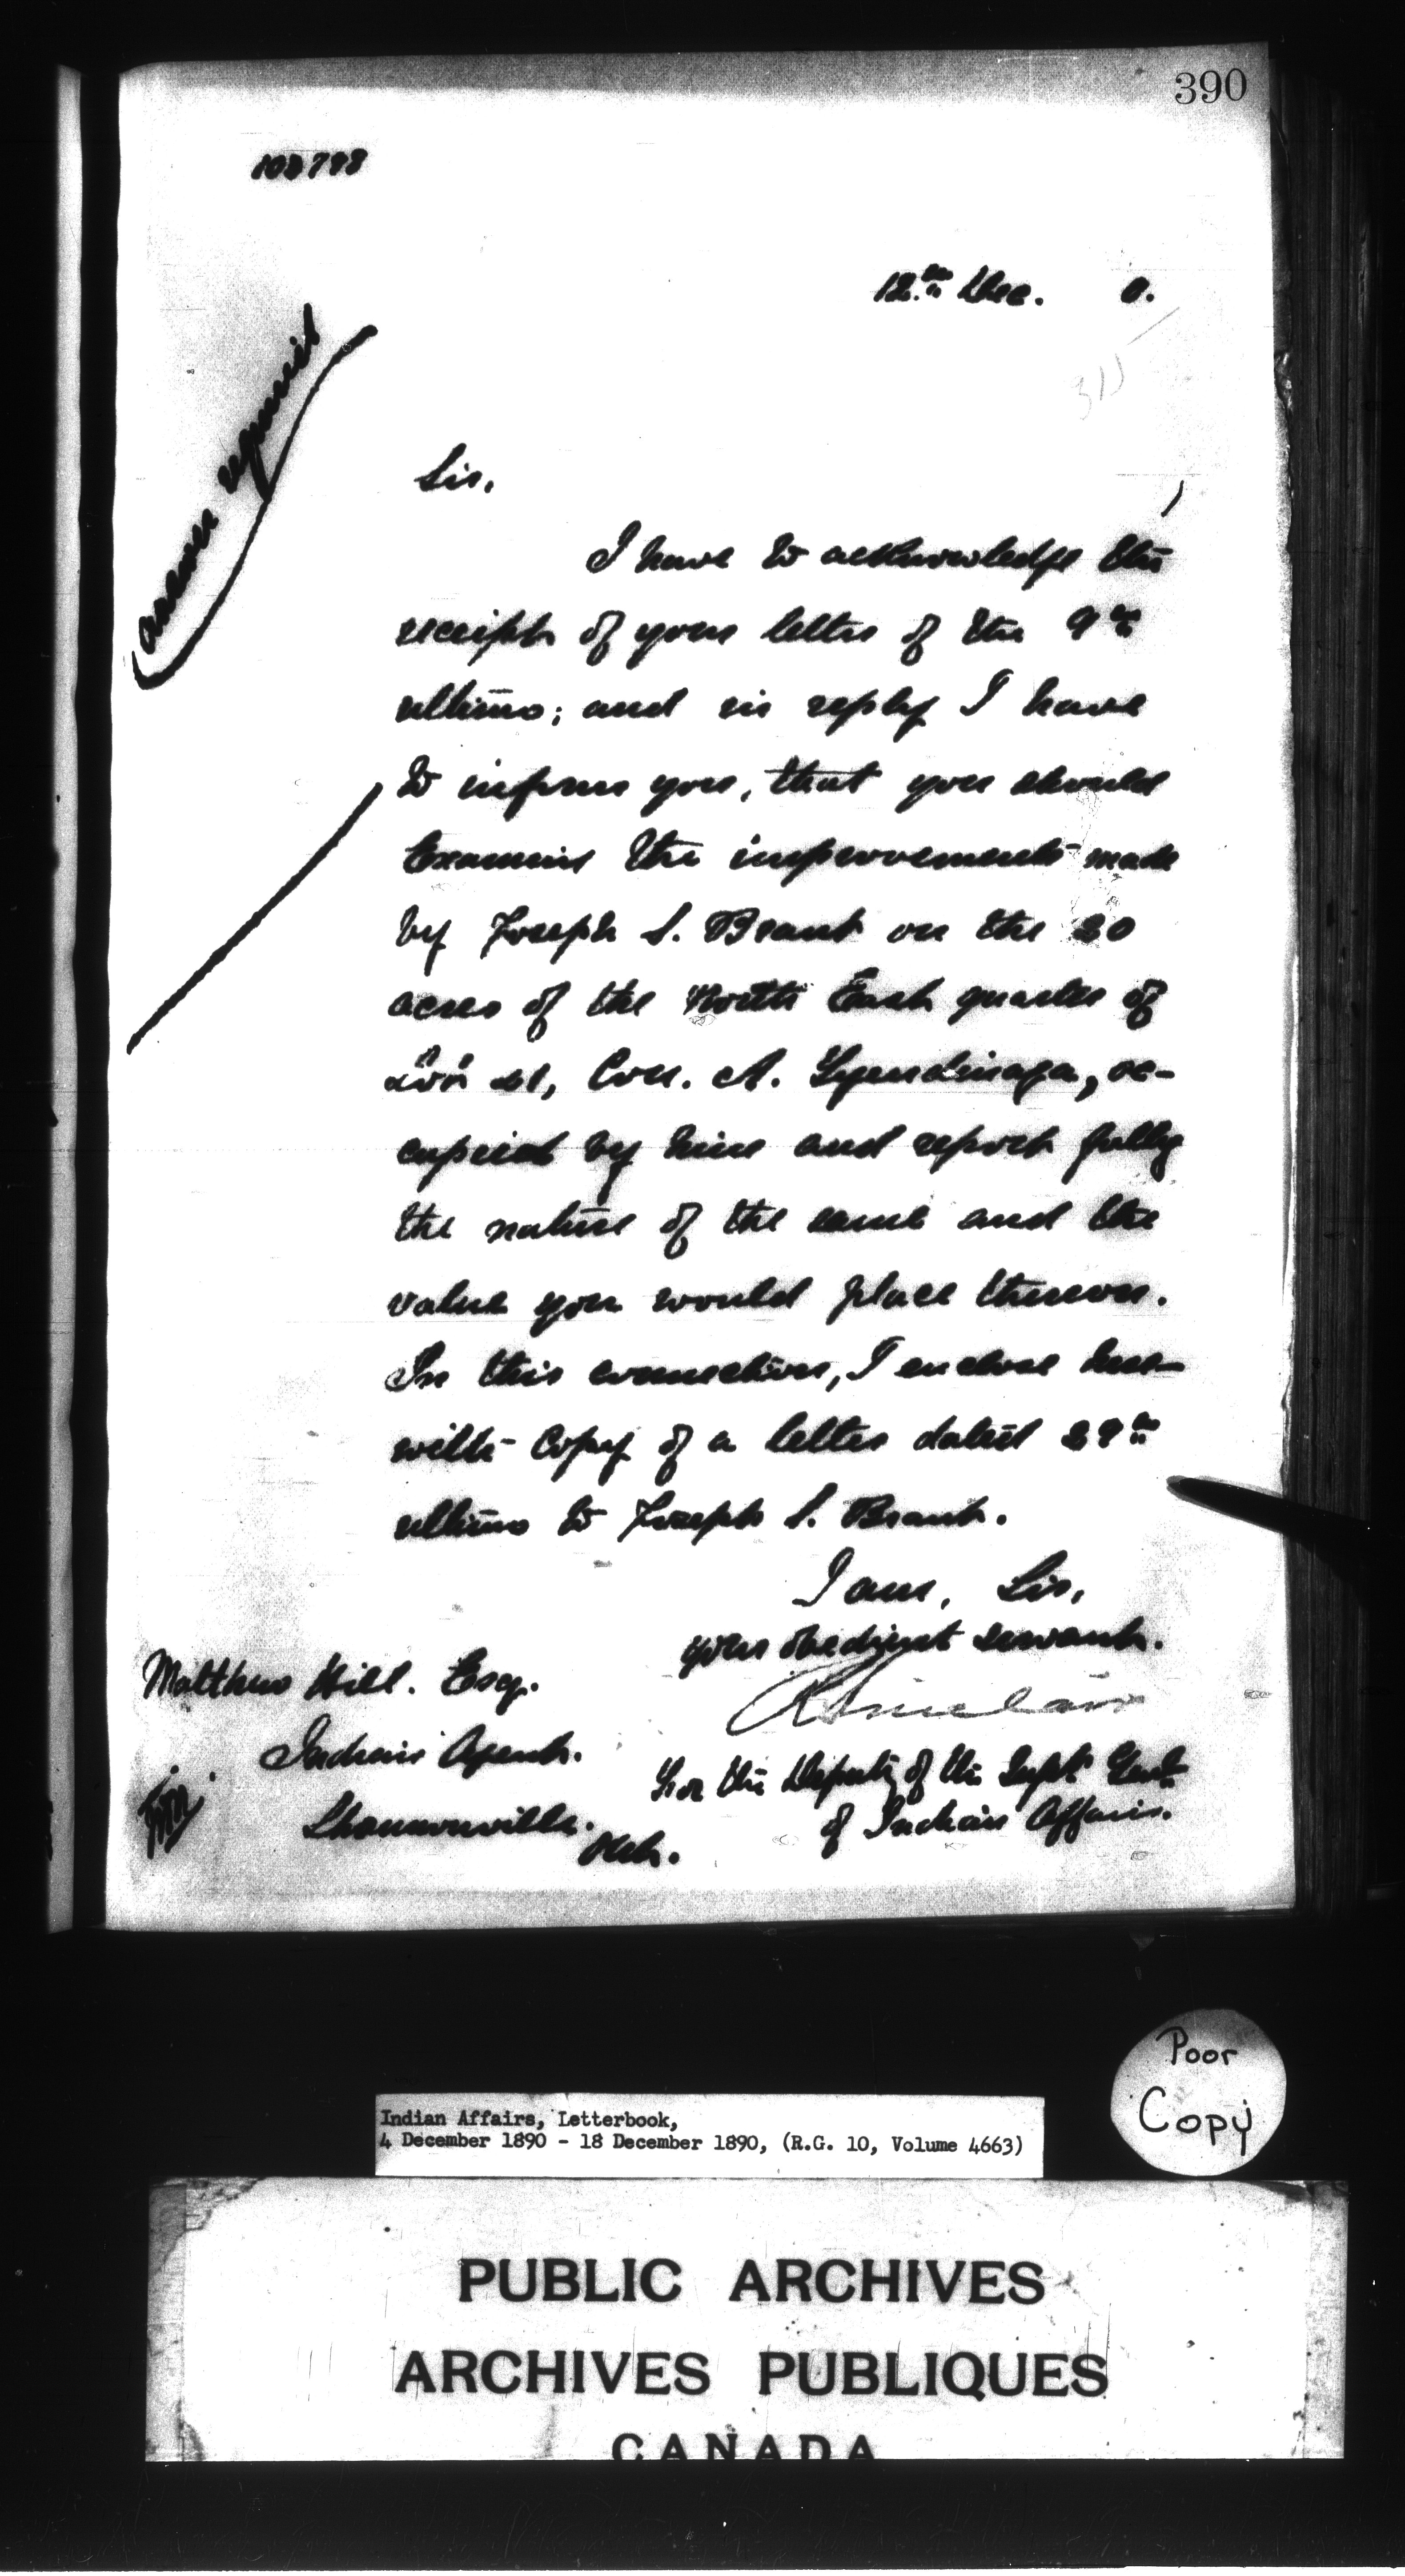 390
12th Dec. 0.
315
answer required
Sir,
I have to acknowledge the
receipt of your letter of the 9th
ultimo; and in reply I have
to inform you, that you should
Examine the improvements made
by Joseph S. Brant on the
acres of the North East quarter of
Lot Con. A. Tyendinaga, oc-
cupied by him and report fully
the nature of the same and the
value you would place thereon.
In this connection, I enclose here-
with copy of a letter dated
ultimo to Joseph S. Brant.
I am, Sir,
your obedient servant.
R Sinclair
For the Deputy of the Supt. Genl.
of Indian Affairs.
Matthew Hill. Esq.
Indian Agent.
Shannonville.
Ont.
Poor
Copy
Indian Affairs, Letterbook,
4 December 1890 - 18 December 1890, (R.G. 10, Volume 4663)
PUBLIC ARCHIVES
ARCHIVES PUBLIQUES
CANADA